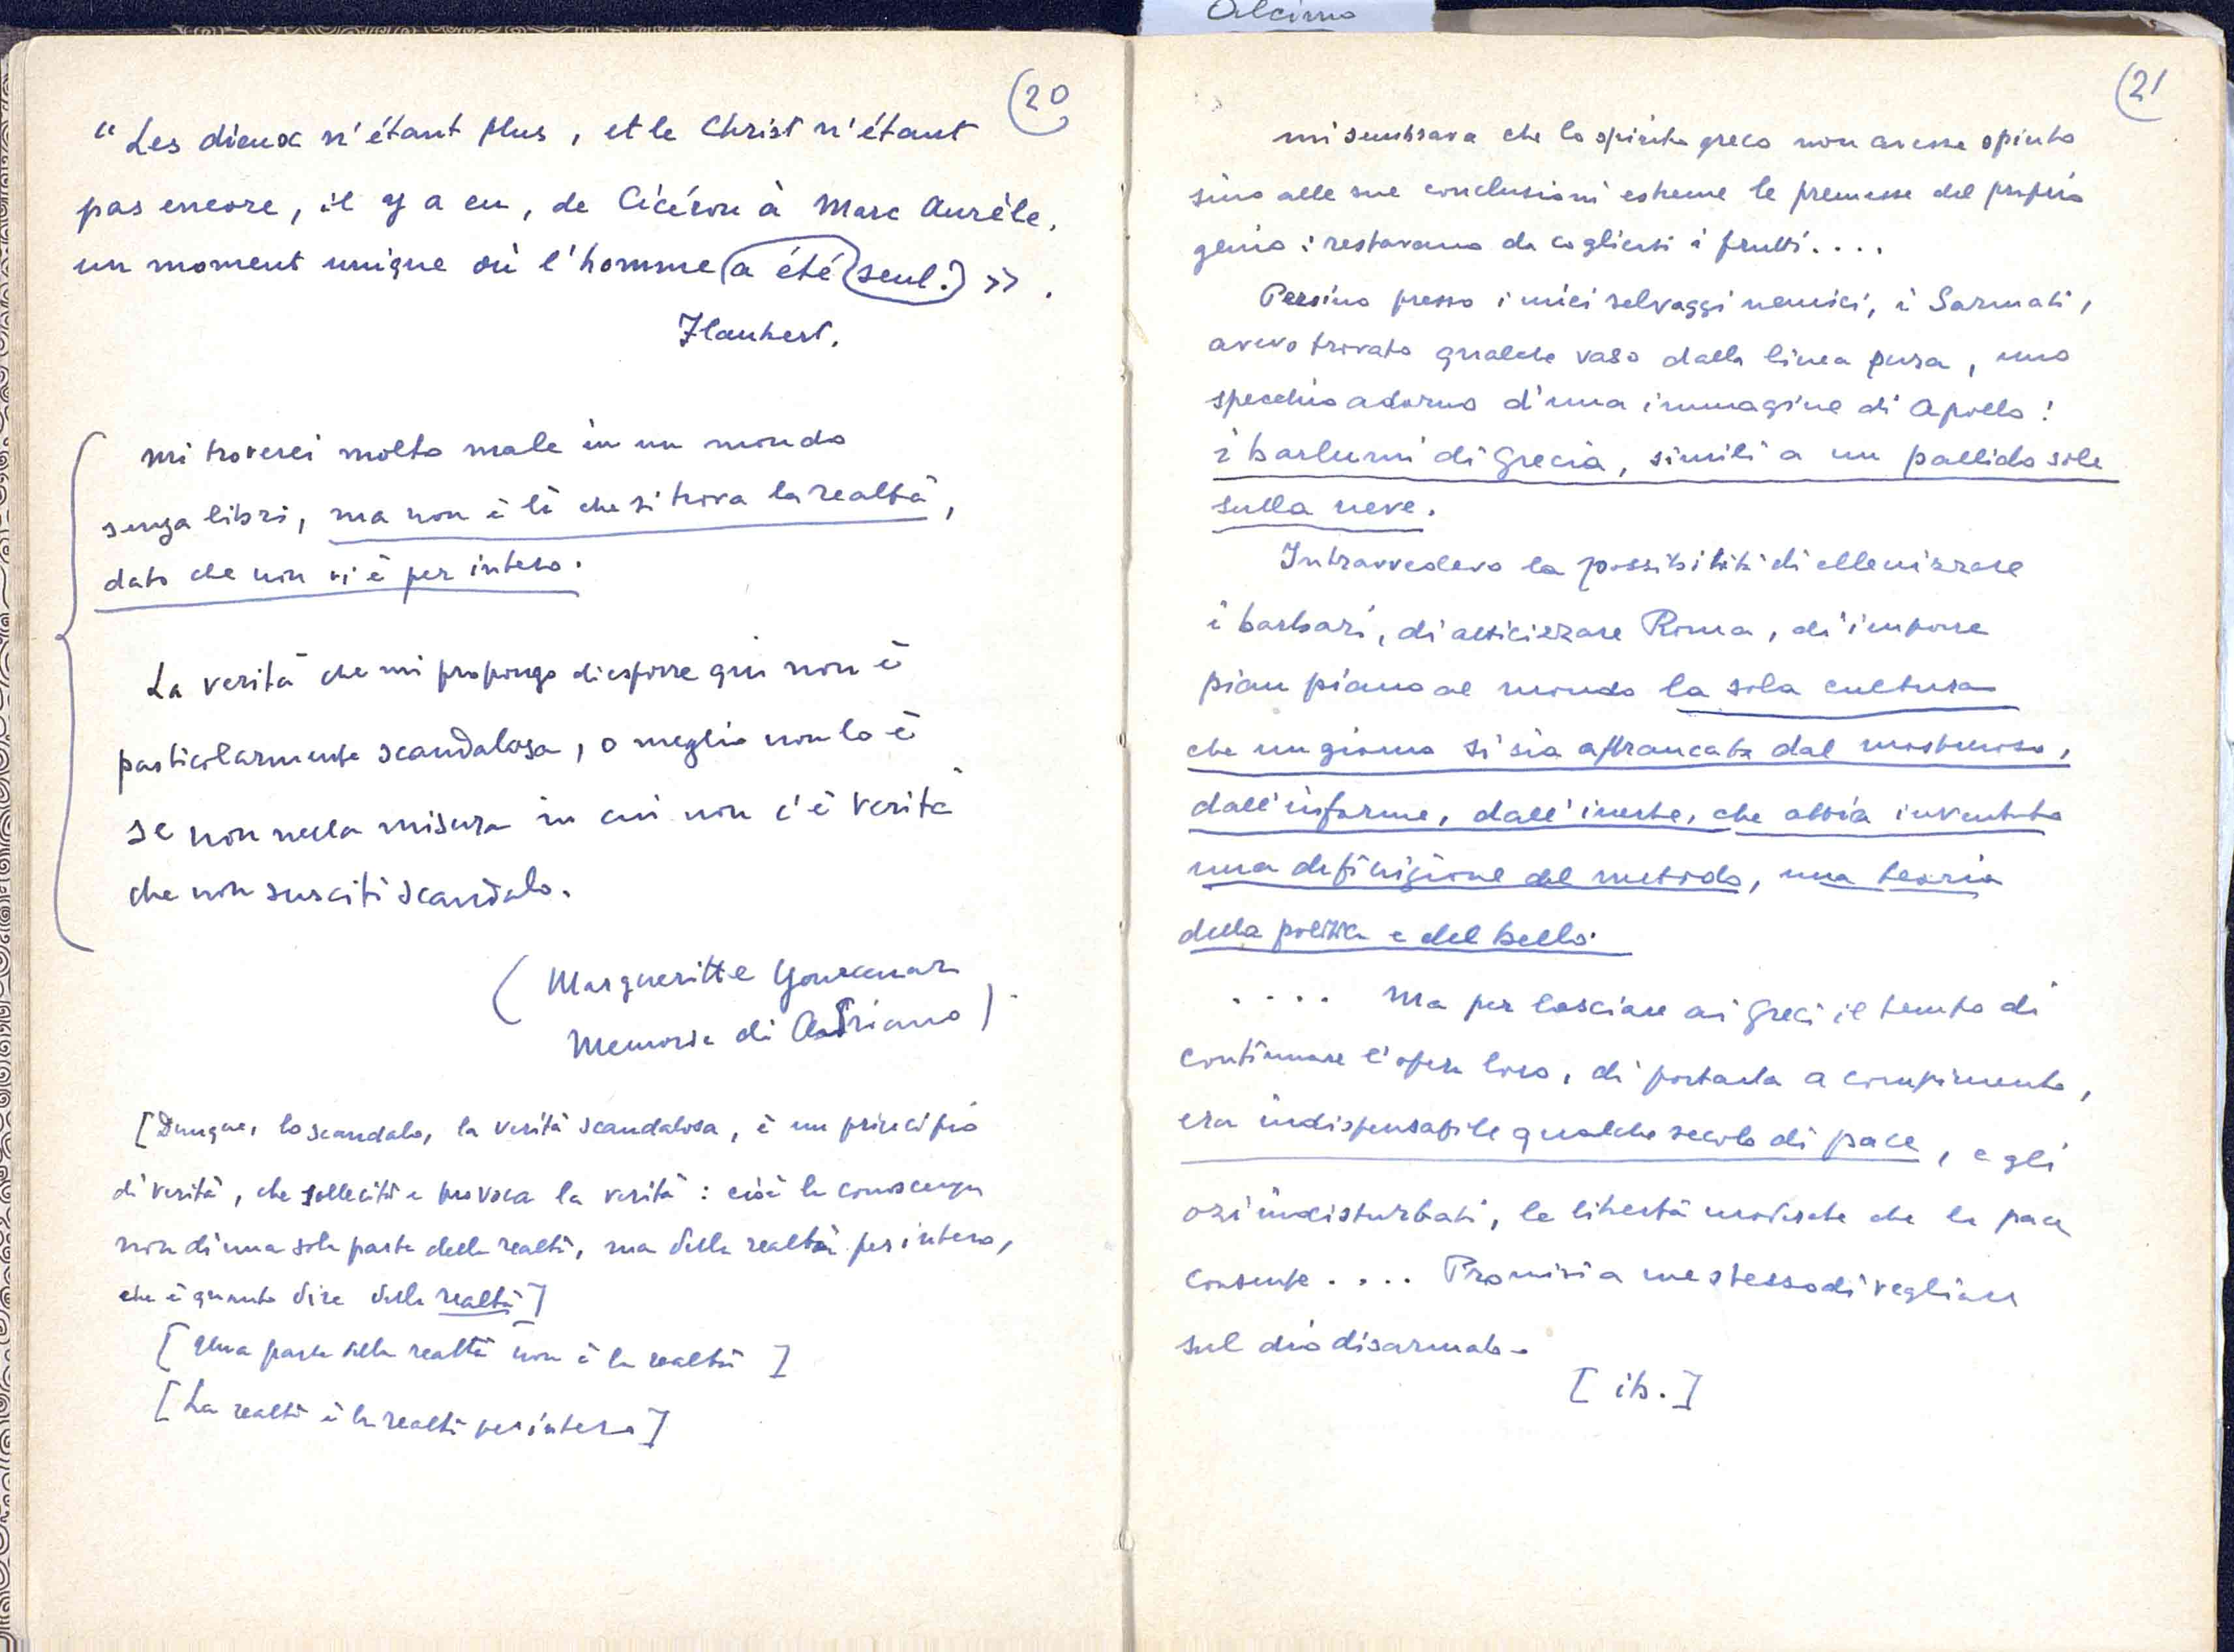 Alcimo
(20
"Les dieux n'étant plus, et le Christ n'étant
pas encore, il y a eu, de Cicéron à Marc Aurèle,
un moment unique où l'homme (a été (seul.) >> .
Flaubert.
mi troverei molto male in un mondo
senza libri, ma non è lì che si trova la realtà,
dato che non vi è per intero.
La verità che mi propongo di esporre qui non è
particolarmente scandalosa, o meglio non lo è
se non nella misura in cui non c'è verità
che non susciti scandalo.
(Margueritte Yourcenar
Memorie di Adriano).
[Dunque, lo scandalo, la verità scandalosa, è un principio
di verità, che sollecita e provoca la verità : cioè la conoscenza
non di una sola parte della realtà, ma della realtà per intero,
che è quanto dire della realtà]
[Una parte della realtà non è la realtà]
[La realtà è la realtà per intero]
(21
mi sembrava che lo spirito greco non avesse spinto
sino alle sue conclusioni estreme le premesse del proprio
genio : restavano da cogliersi i frutti....
Persino presso i miei selvaggi nemici, i Sarmati,
avevo trovato qualche vaso dalla linea pura, uno
specchio adorno d'una immagine di Apollo :
i barlumi di Grecia, simili a un pallido sole
sulla neve.
Intravvedevo la possibilità di ellenizzare
i barbari, di atticizzare Roma, di imporre
pian piano al mondo la sola cultura
che un giorno si sia affrancata dal mostruoso,
dall'informe, dall'inerte, che abbia inventato
una definizione del metodo, una teoria
della politica e del bello.
.... Ma per lasciare ai Greci il tempo di
continuare l'opera loro, di portarla a compimento,
era indispensabile qualche secolo di pace, e gli
ozi indisturbati, le libertà modeste che la pace
consente .... Promisi a me stesso di vegliare
sul dio disarmato.
[ib.]